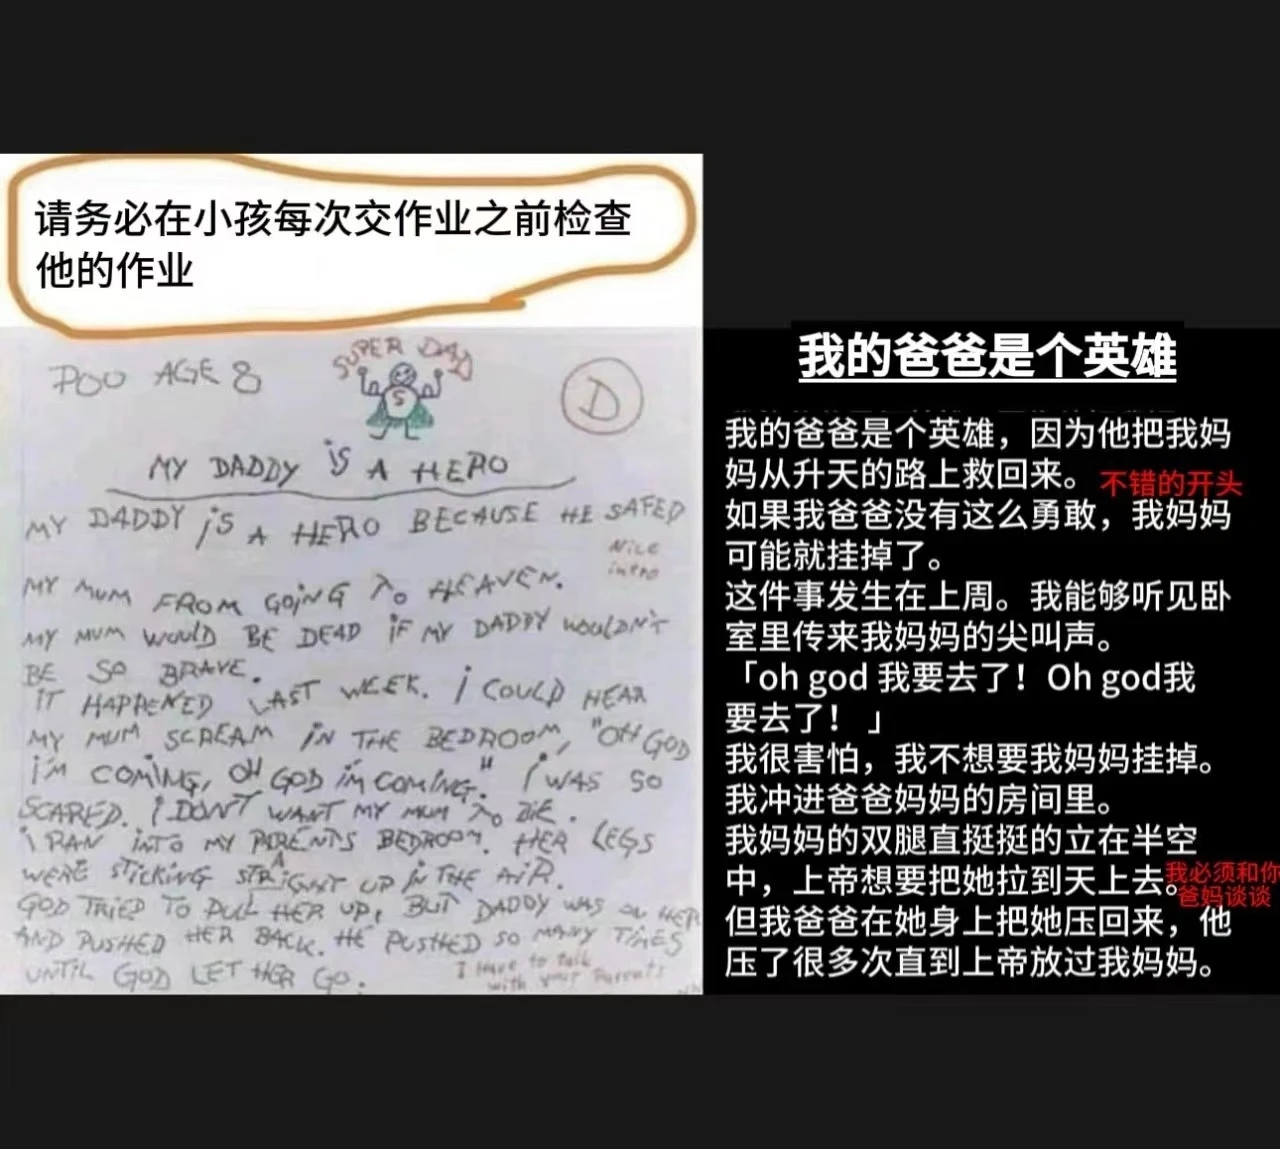 请务必在小孩每次交作业之前检查
他的作业
SUPER DAD
POO AGE 8
S
D
MY DADDY iS A HERO
MY DADDY iS A HERO BECAUSE HE SAFED
Nice
intro
MY MUM FROM GOiNG To HEAVEN.
MY MUM WOULD BE DEAD iF MY DADDY WOULDN'T
BE SO BRAVE.
iT HAPPENED LAST WEEK. i COULD HEAR
MY MUM SCREAM iN THE BEDROOM, "OH GOD
i'M COMING, OH GOD iM COMING." i WAS SO
SCARED. i DON'T WANT MY MUM To DiE.
i RAN iNTO MY PERENTS BEDROOM. HER LEGS
WERE STiCKiNG STRAiGHT UP iN THE AiR.
GOD TRiED TO PULL HER UP, BUT DADDY WAS ON HER
AND PUSHED HER BACK. HE PUSHED SO MANY TiMES
UNTiL GOD LET HER GO.
I Have to talk
with your Parents
我的爸爸是个英雄
我的爸爸是个英雄，因为他把我妈
妈从升天的路上救回来。 不错的开头
如果我爸爸没有这么勇敢，我妈妈
可能就挂掉了。
这件事发生在上周。我能够听见卧
室里传来我妈妈的尖叫声。
「oh god 我要去了！Oh god我
要去了！」
我很害怕，我不想要我妈妈挂掉。
我冲进爸爸妈妈的房间里。
我妈妈的双腿直挺挺的立在半空
中，上帝想要把她拉到天上去。
我必须和你
爸妈谈谈
但我爸爸在她身上把她压回来，他
压了很多次直到上帝放过我妈妈。